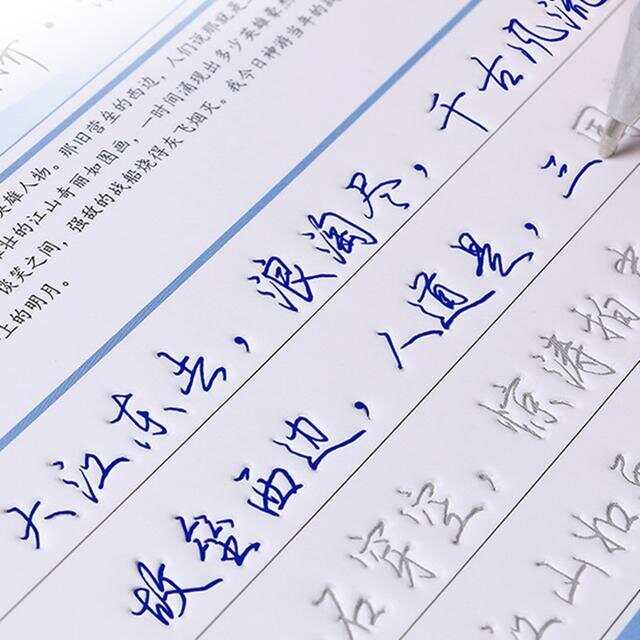 那旧营垒的西边，人们说那就是
英雄人物。
壮的江山奇丽如图画，一时间涌现出多少英雄豪
谈笑之间，强敌的战船烧得灰飞烟灭。我今日神游当年的战
上的明月。
大江东去，浪淘尽，千古风流
故垒西边，人道是，三
石穿空，惊涛拍
江山如